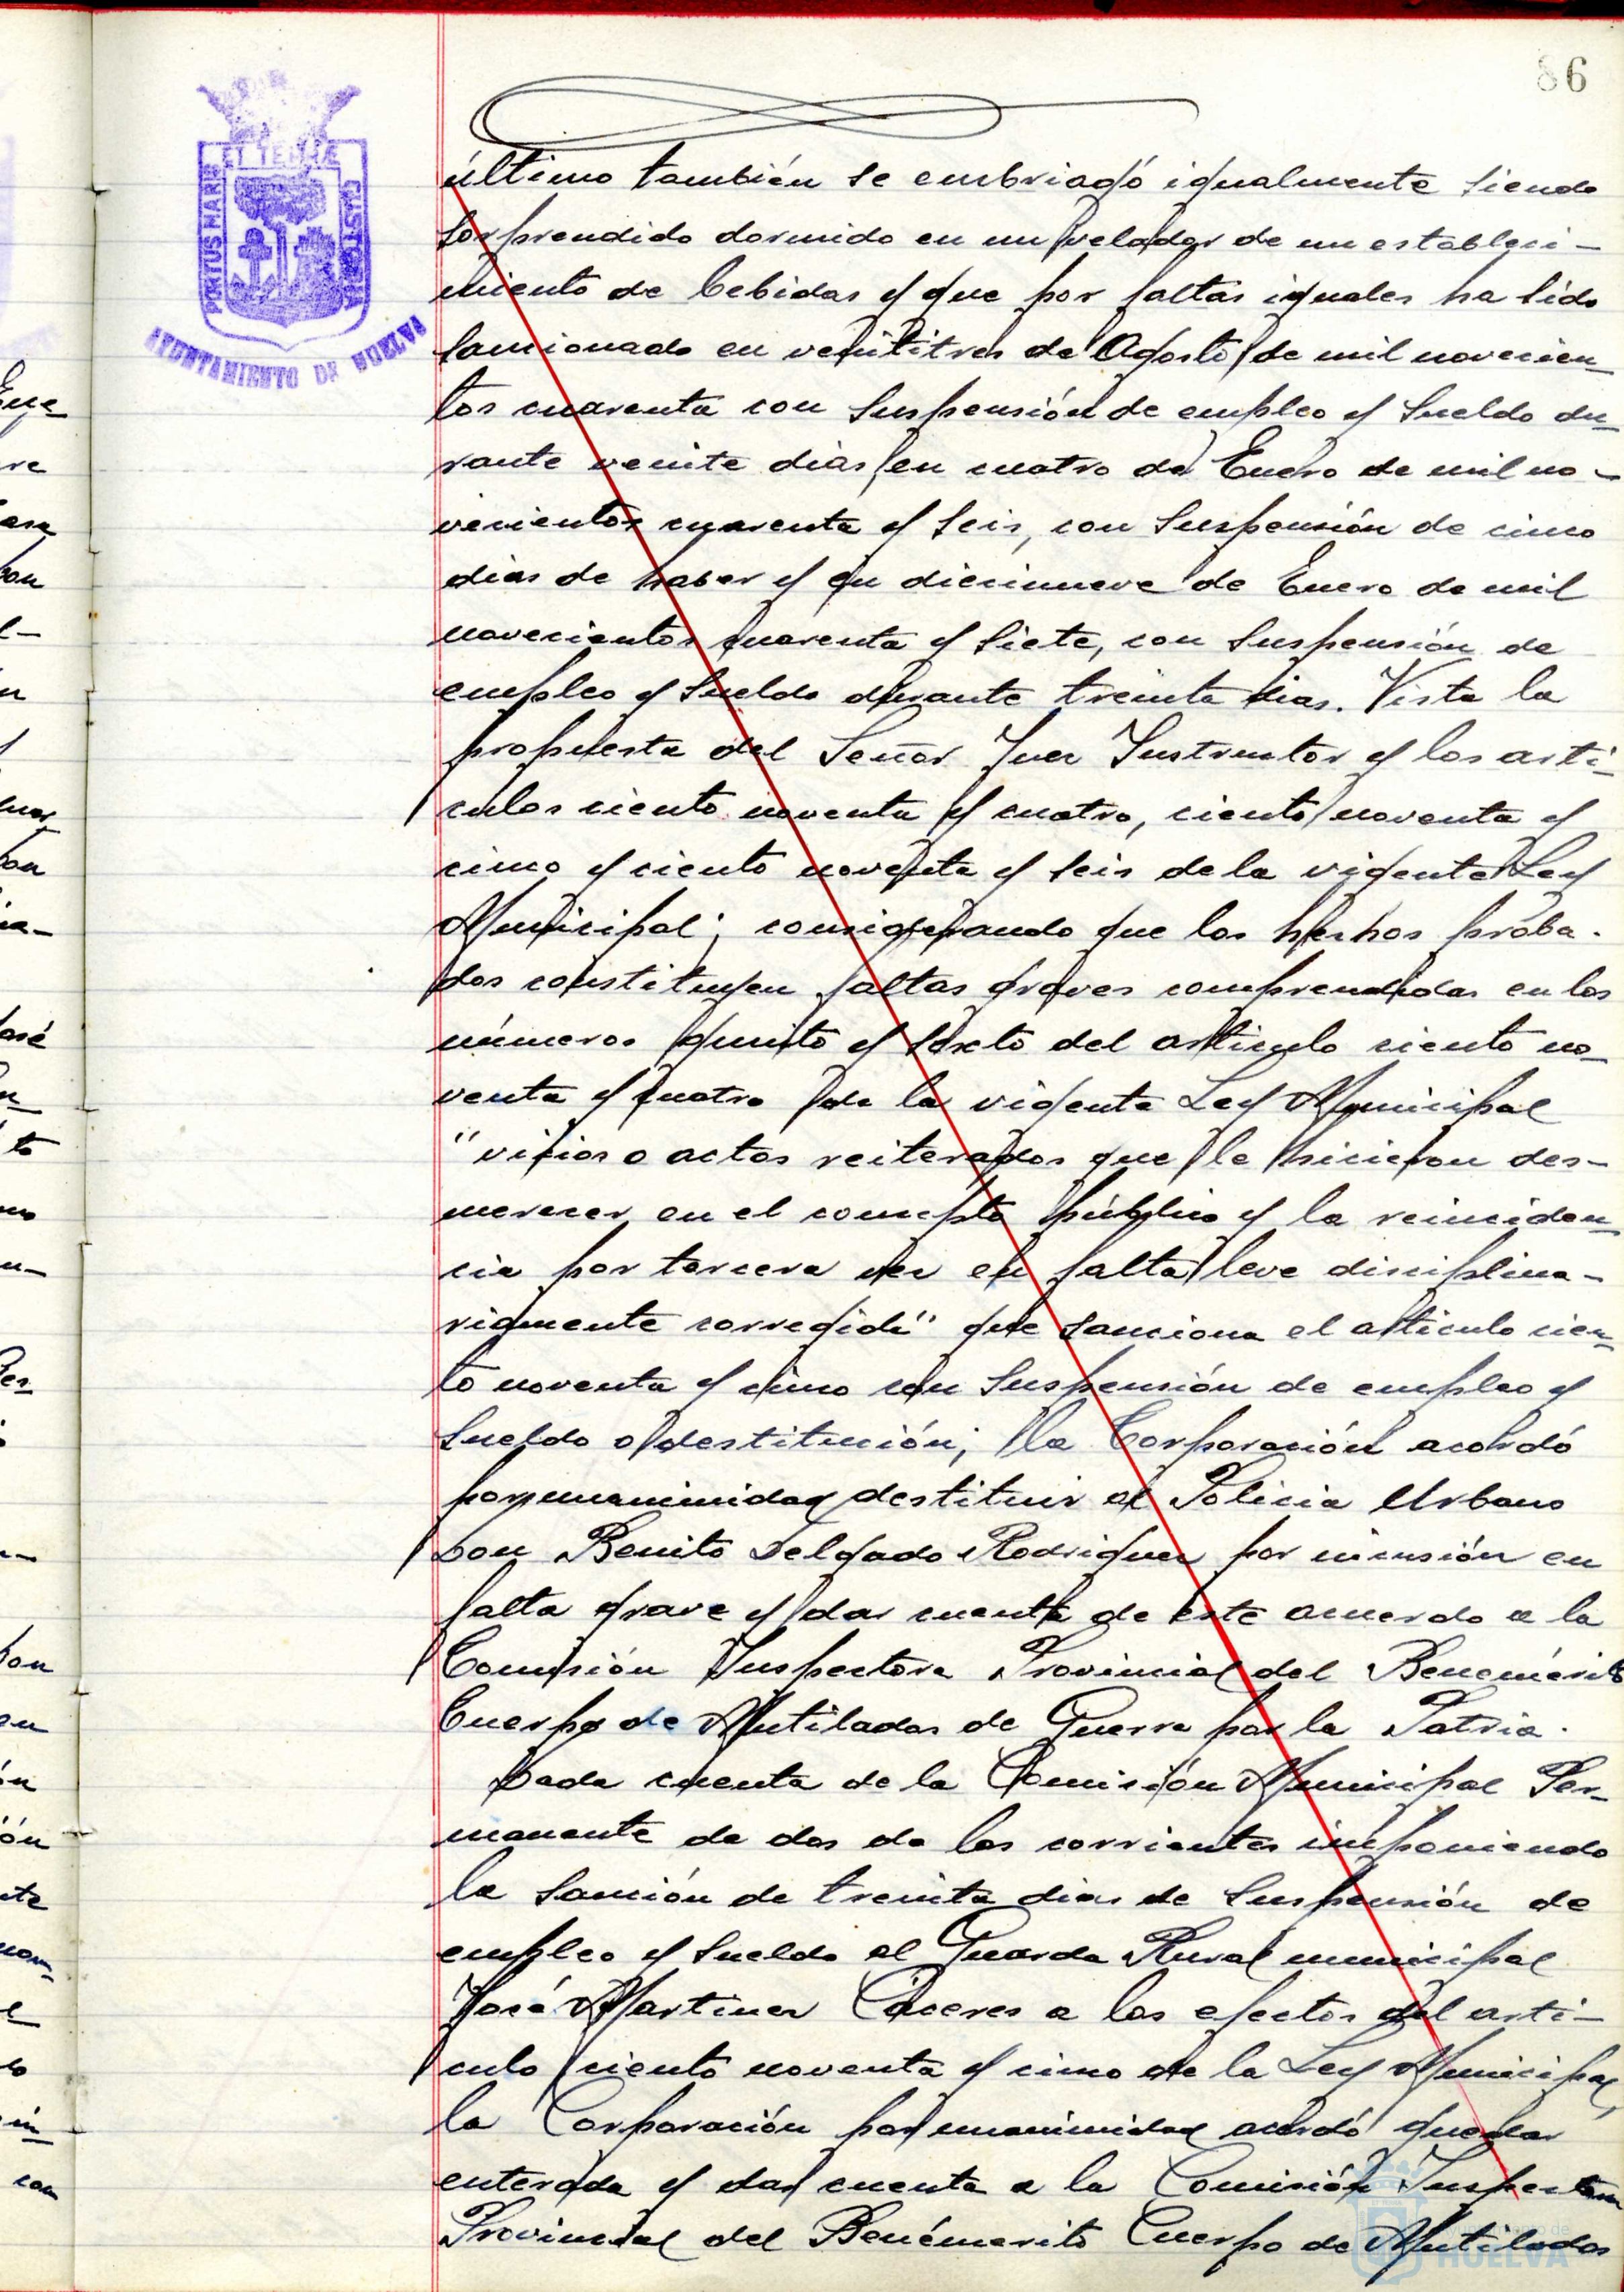 86
ET TERRÆ
PORTUS MARIS
CUSTODIA
AYUNTAMIENTO DE HUELVA
último también se embriagó igualmente siendo
sorprendido dormido en un velador de un estableci-
miento de bebidas y que por faltas iguales ha sido
sancionado en veintitres de Agosto de mil novecien-
tos cuarenta con suspensión de empleo y sueldo du-
rante veinte dias, en cuatro de Enero de mil no-
vecientos cuarenta y seis, con suspensión de cinco
dias de haber y en diecinueve de Enero de mil
novecientos cuarenta y siete, con suspensión de
empleo y sueldo durante treinta dias. Vista la
propuesta del Señor Juez Instructor y los arti-
culos ciento noventa y cuatro, ciento noventa y
cinco y ciento noventa y seis de la vigente Ley
Municipal; considerando que los hechos proba-
dos constituyen faltas graves comprendidas en los
números quinto y sexto del articulo ciento no-
venta y cuatro de la vigente Ley Municipal
"vicios o actos reiterados que le hicieron des-
merecer en el concepto público y la reinciden-
cia por tercera vez en falta leve disciplina-
riamente corregida" que sanciona el articulo cien-
to noventa y cinco con suspensión de empleo y
sueldo o destitución; la Corporación acordó
por unanimidad destituir al Policia Urbano
Don Benito Delgado Rodriguez por incursión en
falta grave y dar cuenta de este acuerdo a la
Comisión Inspectora Provincial del Benemérito
Cuerpo de Mutilados de Guerra por la Patria.
Dada cuenta de la Comisión Municipal Per-
manente de dos de los corrientes imponiendo
la sanción de treinta dias de suspensión de
empleo y sueldo al Guarda Rural municipal
José Martinez Cáceres a los efectos del arti-
culo ciento noventa y cinco de la Ley Municipal,
la Corporación por unanimidad acordó quedar
enterada y dar cuenta a la Comisión Inspectora
Provincial del Benémerito Cuerpo de Mutilados
Ayuntamiento de
HUELVA